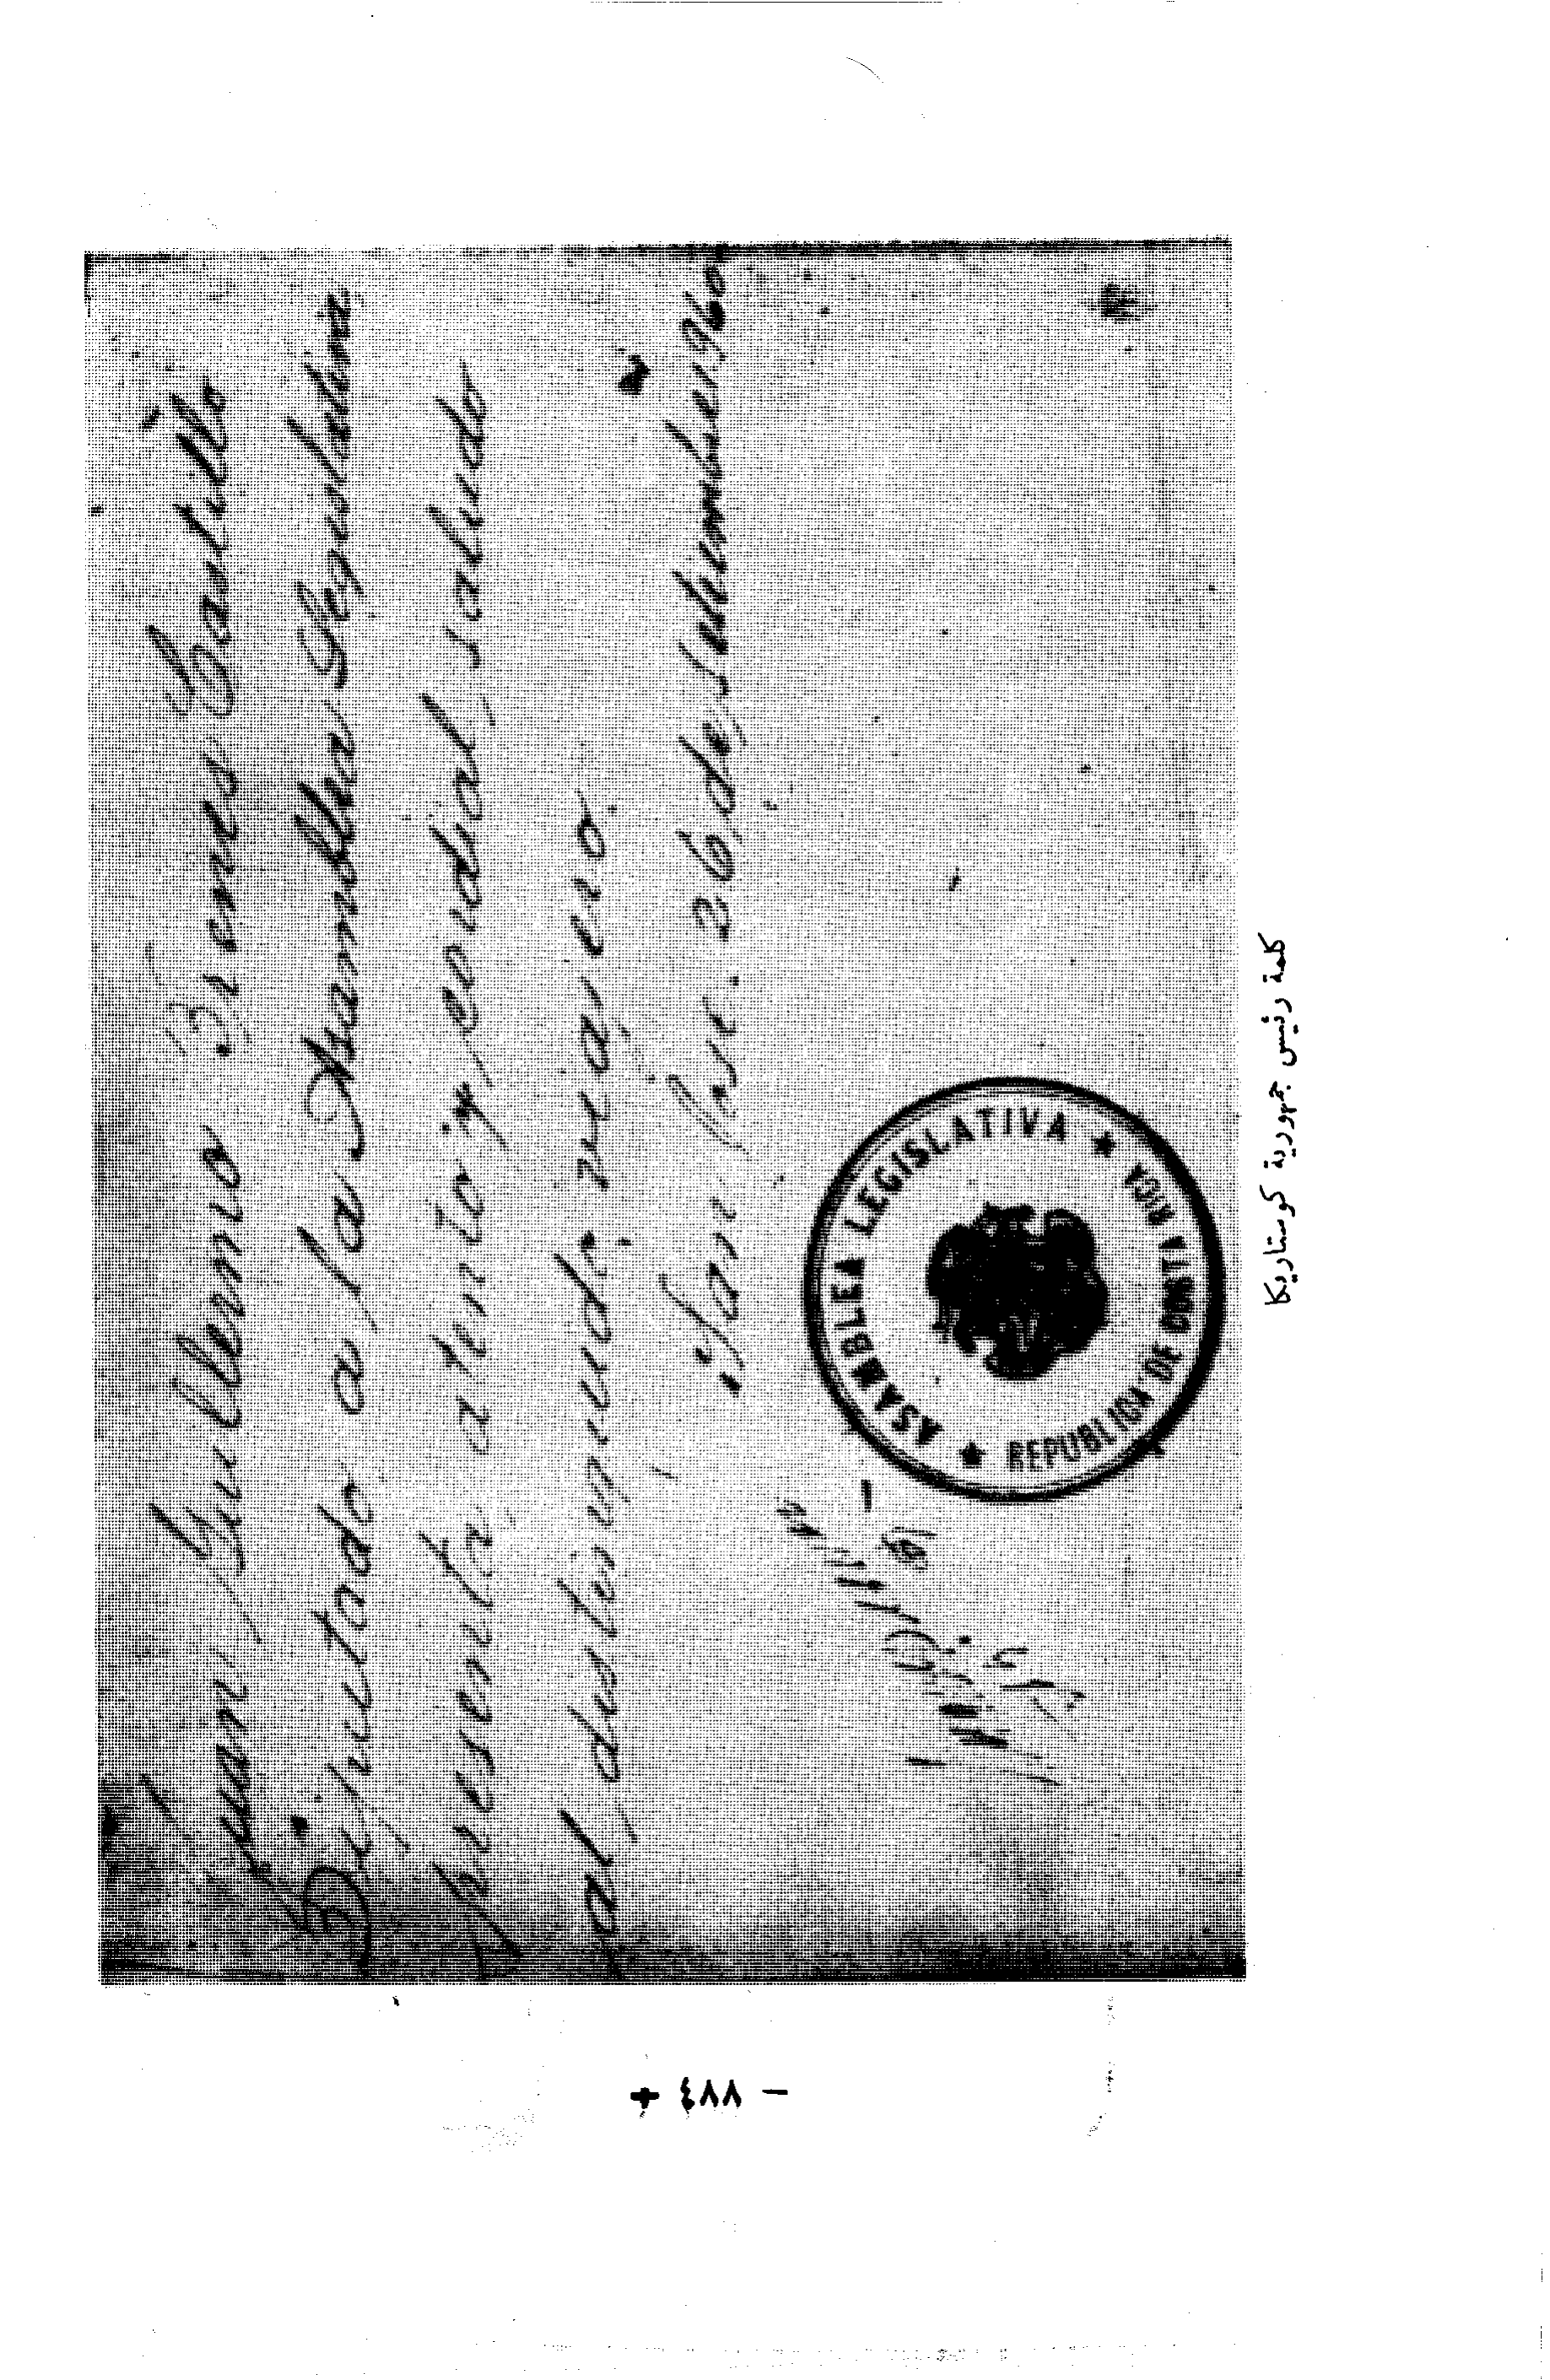 Juan Guillermo Brenes Castillo
Diputado a la Asamblea Legislativa
presenta atento y cordial saludo
al distinguido viajero.
San José. 26 de Setiembre 1960
ASAMBLEA LEGISLATIVA
REPUBLICA DE COSTA RICA
كلمة رئيس جمهورية كوستاريكا
– ٤٨٨ +